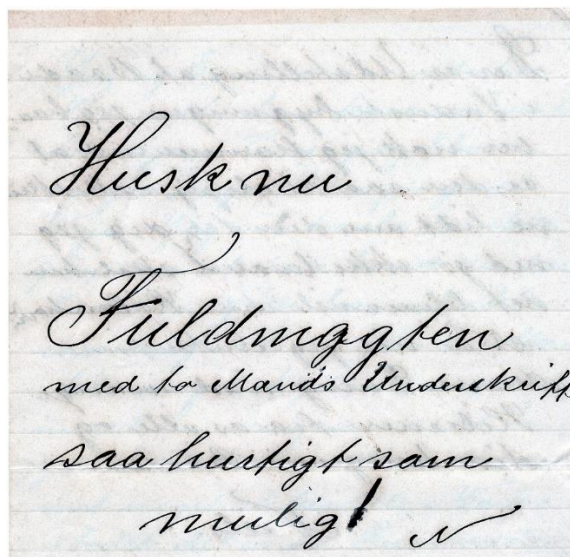 Husk nu
Fuldmagten
med to Mands Underskrift
saa hurtigt som
muligt
N